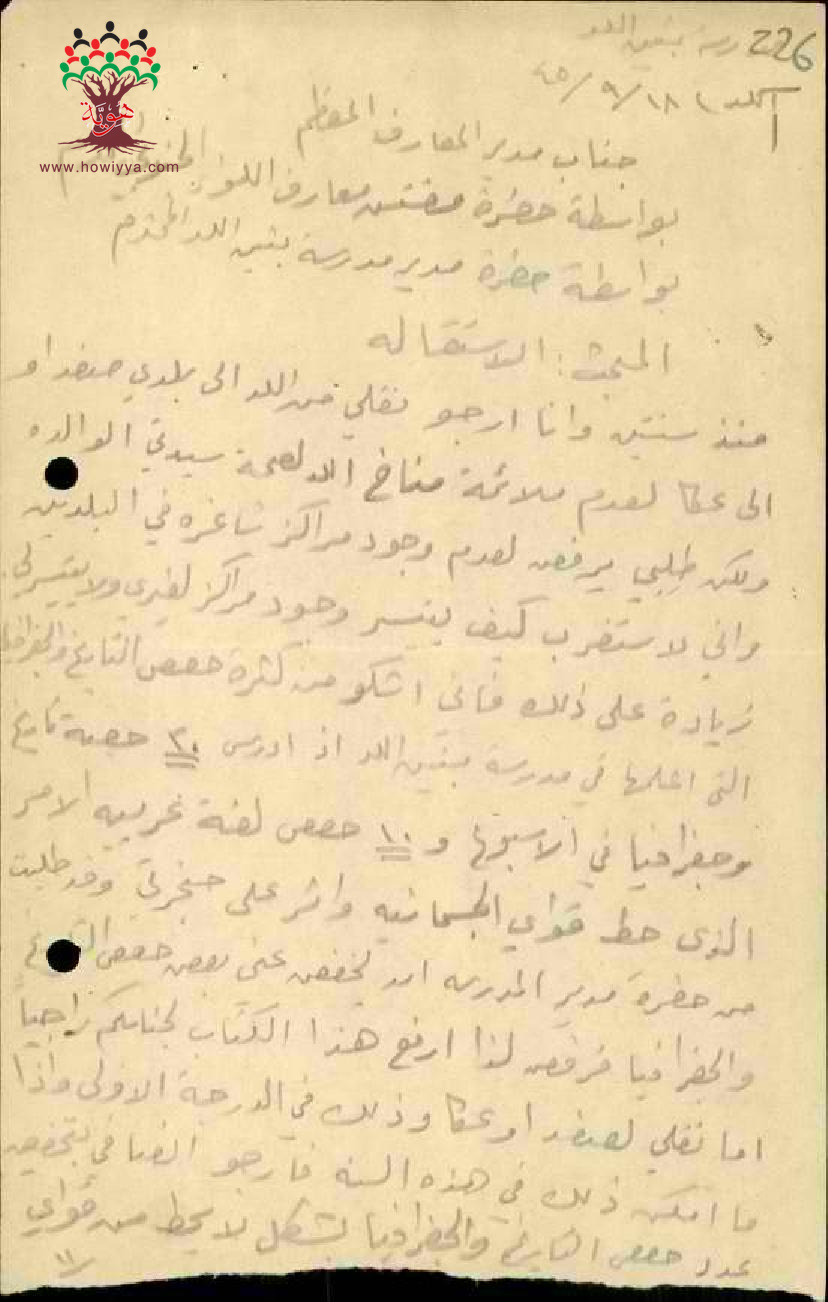 226
مدرسة بنين اللد
اللد ١٨/٩/٤٥
هويّة
www.howiyya.com
جناب مدير المعارف المعظم
بواسطة حضرة مفتش معارف اللواء
بواسطة حضرة مدير مدرسة بنين اللد المحترم
المبحث: الاستقاله
منذ سنتين وانا ارجو نقلي من اللد الى بلدي صفد او
الى عكا لعدم ملائمة مناخ اللد لصحة سيدتي الوالده
ولكن طلبي يرفض لعدم وجود مراكز شاغره في البلدين
واني لاستغرب كيف يتيسر وجود مراكز لغيري ولا يتيسر لي.
زيادة على ذلك فانى اشكو من كثرة حصص التاريخ والجغرافيا
التي اعلمها في مدرسة بنين اللد اذ ادرس ٢٠ حصة تاريخ
وجغرافيا في الاسبوع و ١٠ حصص لغة عربيه الامر
الذى حط قواي الجسمانيه واثر على حنجرتي وقد طلبت
من حضرة مدير المدرسه ان يخفض عني بعض حصص التاريخ
والجغرافيا فرفض لذا ارفع هذا الكتاب لجنابكم راجيا
اما نقلي لصفد او عكا وذلك في الدرجة الاولى واذا
ما امكن ذلك في هذه السنه فارجو
عدد حصص التاريخ والجغرافيا بشكل لا يحط من قواي